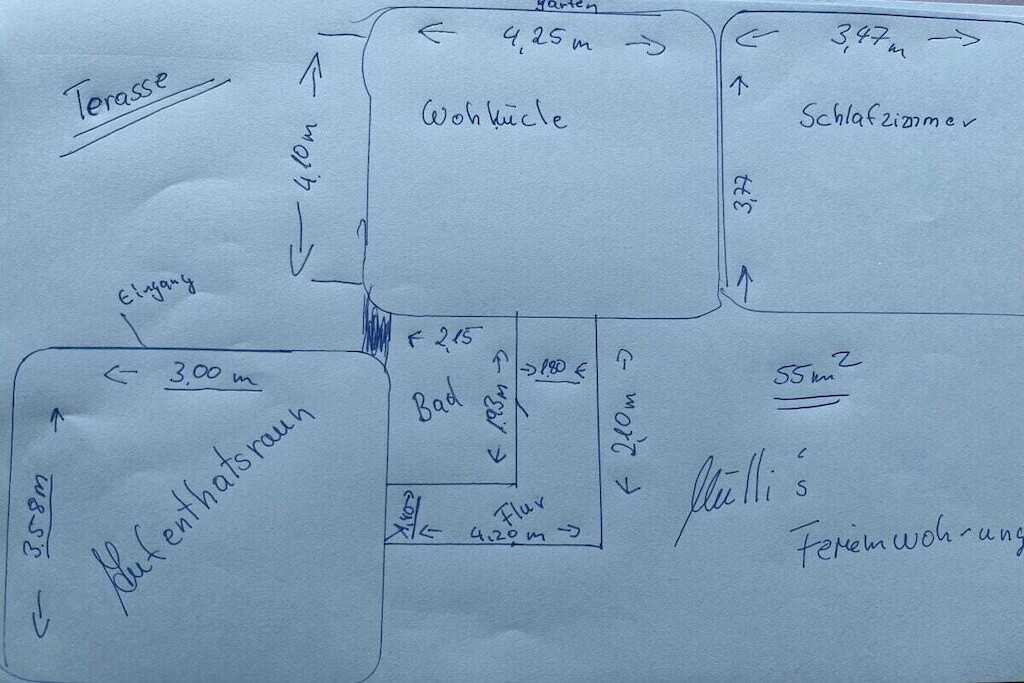 garten
4,25 m
3,47 m
Terasse
4,10 m
Wohküche
Schlafzimmer
3,77
Eingang
2,15
3,00 m
Bad
1,93 m
1,80
2,10 m
55 m²
Aufenthatsraum
3,58 m
1,40
Flur
4,20 m
Mülli's
Ferienwohnung